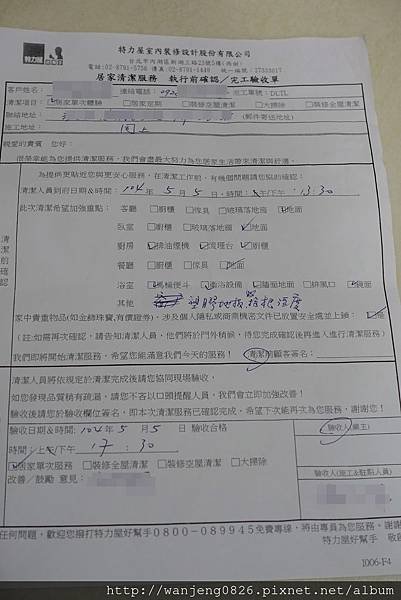 特力屋 好幫手
特力屋室內裝修設計股份有限公司
台北市內湖區新湖三路23號5樓(西側)
電話:02-8791-5756 傳真:02-8791-1449 統一編號:27333017
居家清潔服務 執行前確認/完工驗收單
客戶姓名: 連絡電話: 092 施工單號: DLTL
清潔項目: ☑居家單次體驗 □居家定期 □裝修全屋清潔 □大掃除 □裝修空屋清潔
聯絡地址: (郵件寄送地址)
施工地址: 同上
親愛的貴賓 您好:
很榮幸能為您提供清潔服務,我們會盡最大努力為您居家生活帶來清潔與舒適。
為提供更貼近您與更安心服務,在清潔工作前,有幾個問題請您協助確認:
清潔人員到府日期&時間: 104 年 5 月 5 日,時間: 上午/下午: 13:30
此次清潔希望加強重點: 客廳 □櫥櫃 □傢具 □玻璃落地窗 ☑地面
臥室 □櫥櫃 □玻璃落地窗 ☑地面
廚房 ☑排油煙機 ☑流理台 ☑櫥櫃
餐廳 □櫥櫃 □傢具 □地面
浴室 ☑馬桶便斗 ☑衛浴設備 ☑牆面地面 □排風口 ☑鏡面
其他 塑膠地板
清潔前確認
家中貴重物品(如金飾珠寶,有價證券),涉及個人隱私或商業機密文件已放置安全處並上鎖: ☑是
(註:如需再次確認,請告知清潔人員,他們將於門外稍候,待您完成確認後再進入進行清潔服務)
我們即將開始清潔服務,希望您能滿意我們今天的服務! 清潔前顧客簽名:
清潔人員將依規定於清潔完成後請您協同現場驗收,
如您發現品質稍有疏漏,請您不吝以口頭提醒人員,我們會立即加強改善!
驗收後請您於驗收欄位簽名,即本次清潔服務已確認完成,希望下次能再次為您服務,謝謝您!
驗收日期&時間: 104 年 5 月 5 日 驗收合格
時間:上午/下午 17:30
驗收人(顧主)
☑居家單次服務 □裝修全屋清潔 □裝修空屋清潔 □大掃除
驗收人(施工&駐點人員)
改善/鼓勵 意見:
任何問題,歡迎您撥打特力屋好幫手0800-089945免費專線,將由專員為您服務。謝謝
特力屋好幫手 敬啟
ID06-F4
http://wanjeng0826.pixnet.net/album